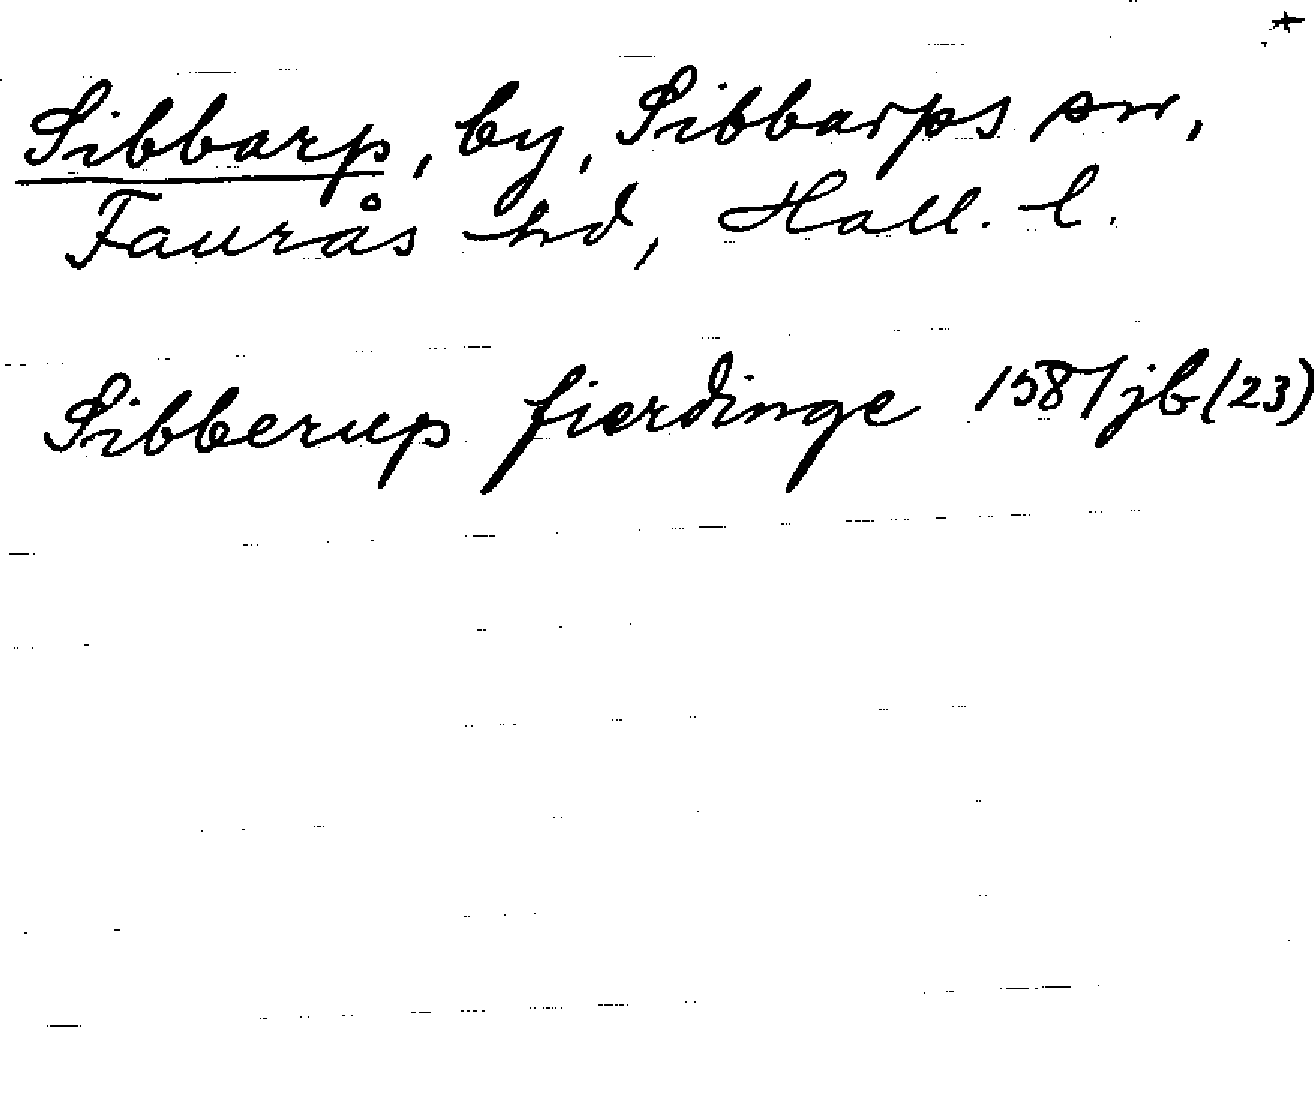 +
Sibbarp, by, Sibbarps sn,
Faurås hd, Hall. l.
Sibberup fierdinge 1587 jb (23)